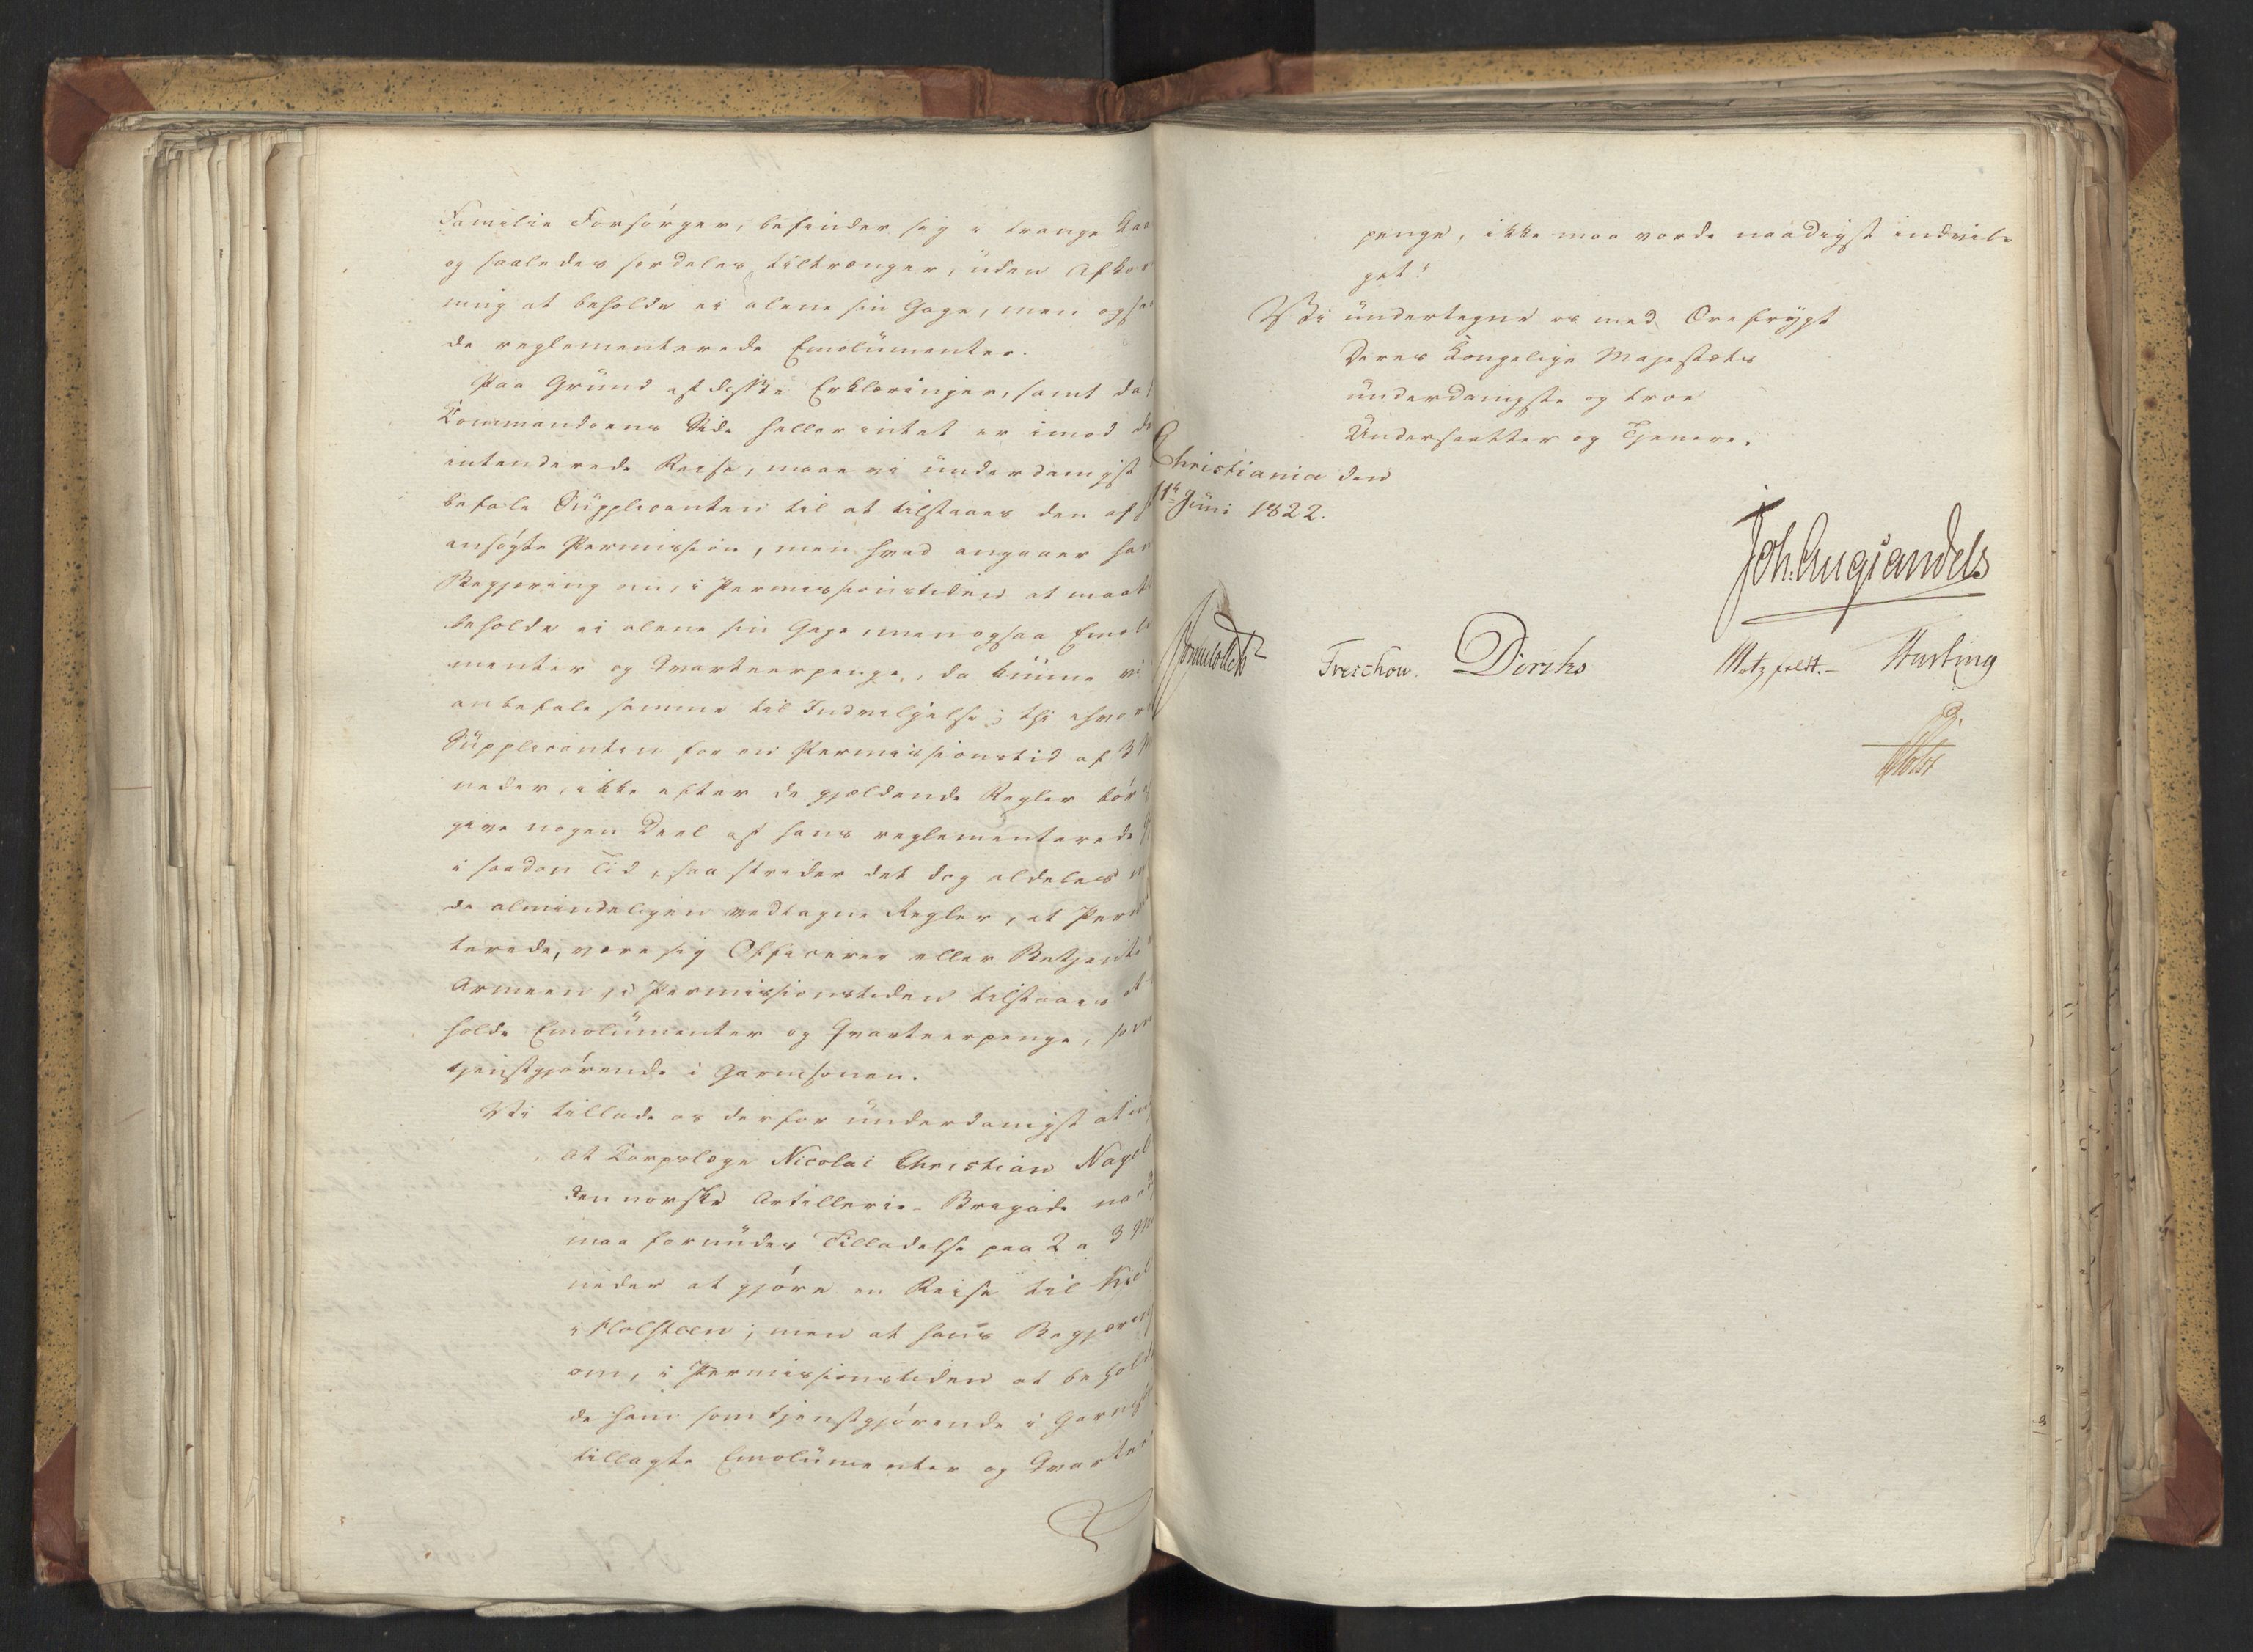 Familie Forsörger, befinder sig i trange Kaa
og saaledes serdeles tiltrænger, uden Afkor
ning at beholde ei alene sin Gage, men ogsaa
de reglementerede Emolumenter.
Paa Grund af disse Erklæringer, samt da
Kommandoens Side heller intet er imod de
intenderede Reise, maae vi underdanigst
befale Supplicanten til at tilstaaes den af
ansögte Permission, men hvad angaaer han
Begjæring om, i Permissionstiden at maat
beholde ei alene sin Gage, men ogsaa Emol
menter og Qvarteerpenge, da kunne vi
anbefale samme til Indvilgelse; thi ihvor
Supplicanten for en Permissionstid af 3 M
neder, ikke efter de gjældende Regler bör
give nogen Deel af hans reglementerede
i saadan Tid, saa strider det dog aldeles
de almindeligen vedtagne Regler, at Perm
terede, være sig Officerer eller Betjente
Armeen, i Permissionstiden tilstaaes at
holde Emolumenter og Qvarteerpenge, som
tjenstgjörende i Garnisonen.
Vi tillade os derfor underdanigst at in
at Korpslæge Nicolai Christian Nagel
den norske Artillerie-Brigade naad
maa forundes Tilladelse paa 2 a 3 Ma
neder at gjöre en Reise til Kiel
i Holsteen; men at hans Begjæring
om, i Permissionstiden at behol
de ham som tjenstgjörende i Garnis
tillagte Emolumenter og Qvarteer
penge, ikke maa vorde naadigst indvil
get!
Vi undertegne os med Ærefrygt
Deres Kongelige Majestæts
underdanigste og troe
Undersaatter og Tjenere.
Christiania den
11te Juni 1822.
Joh: Aug Sandels
Sommerfeldt Treschow. Diriks Motzfeldt.- Fasting
Holst